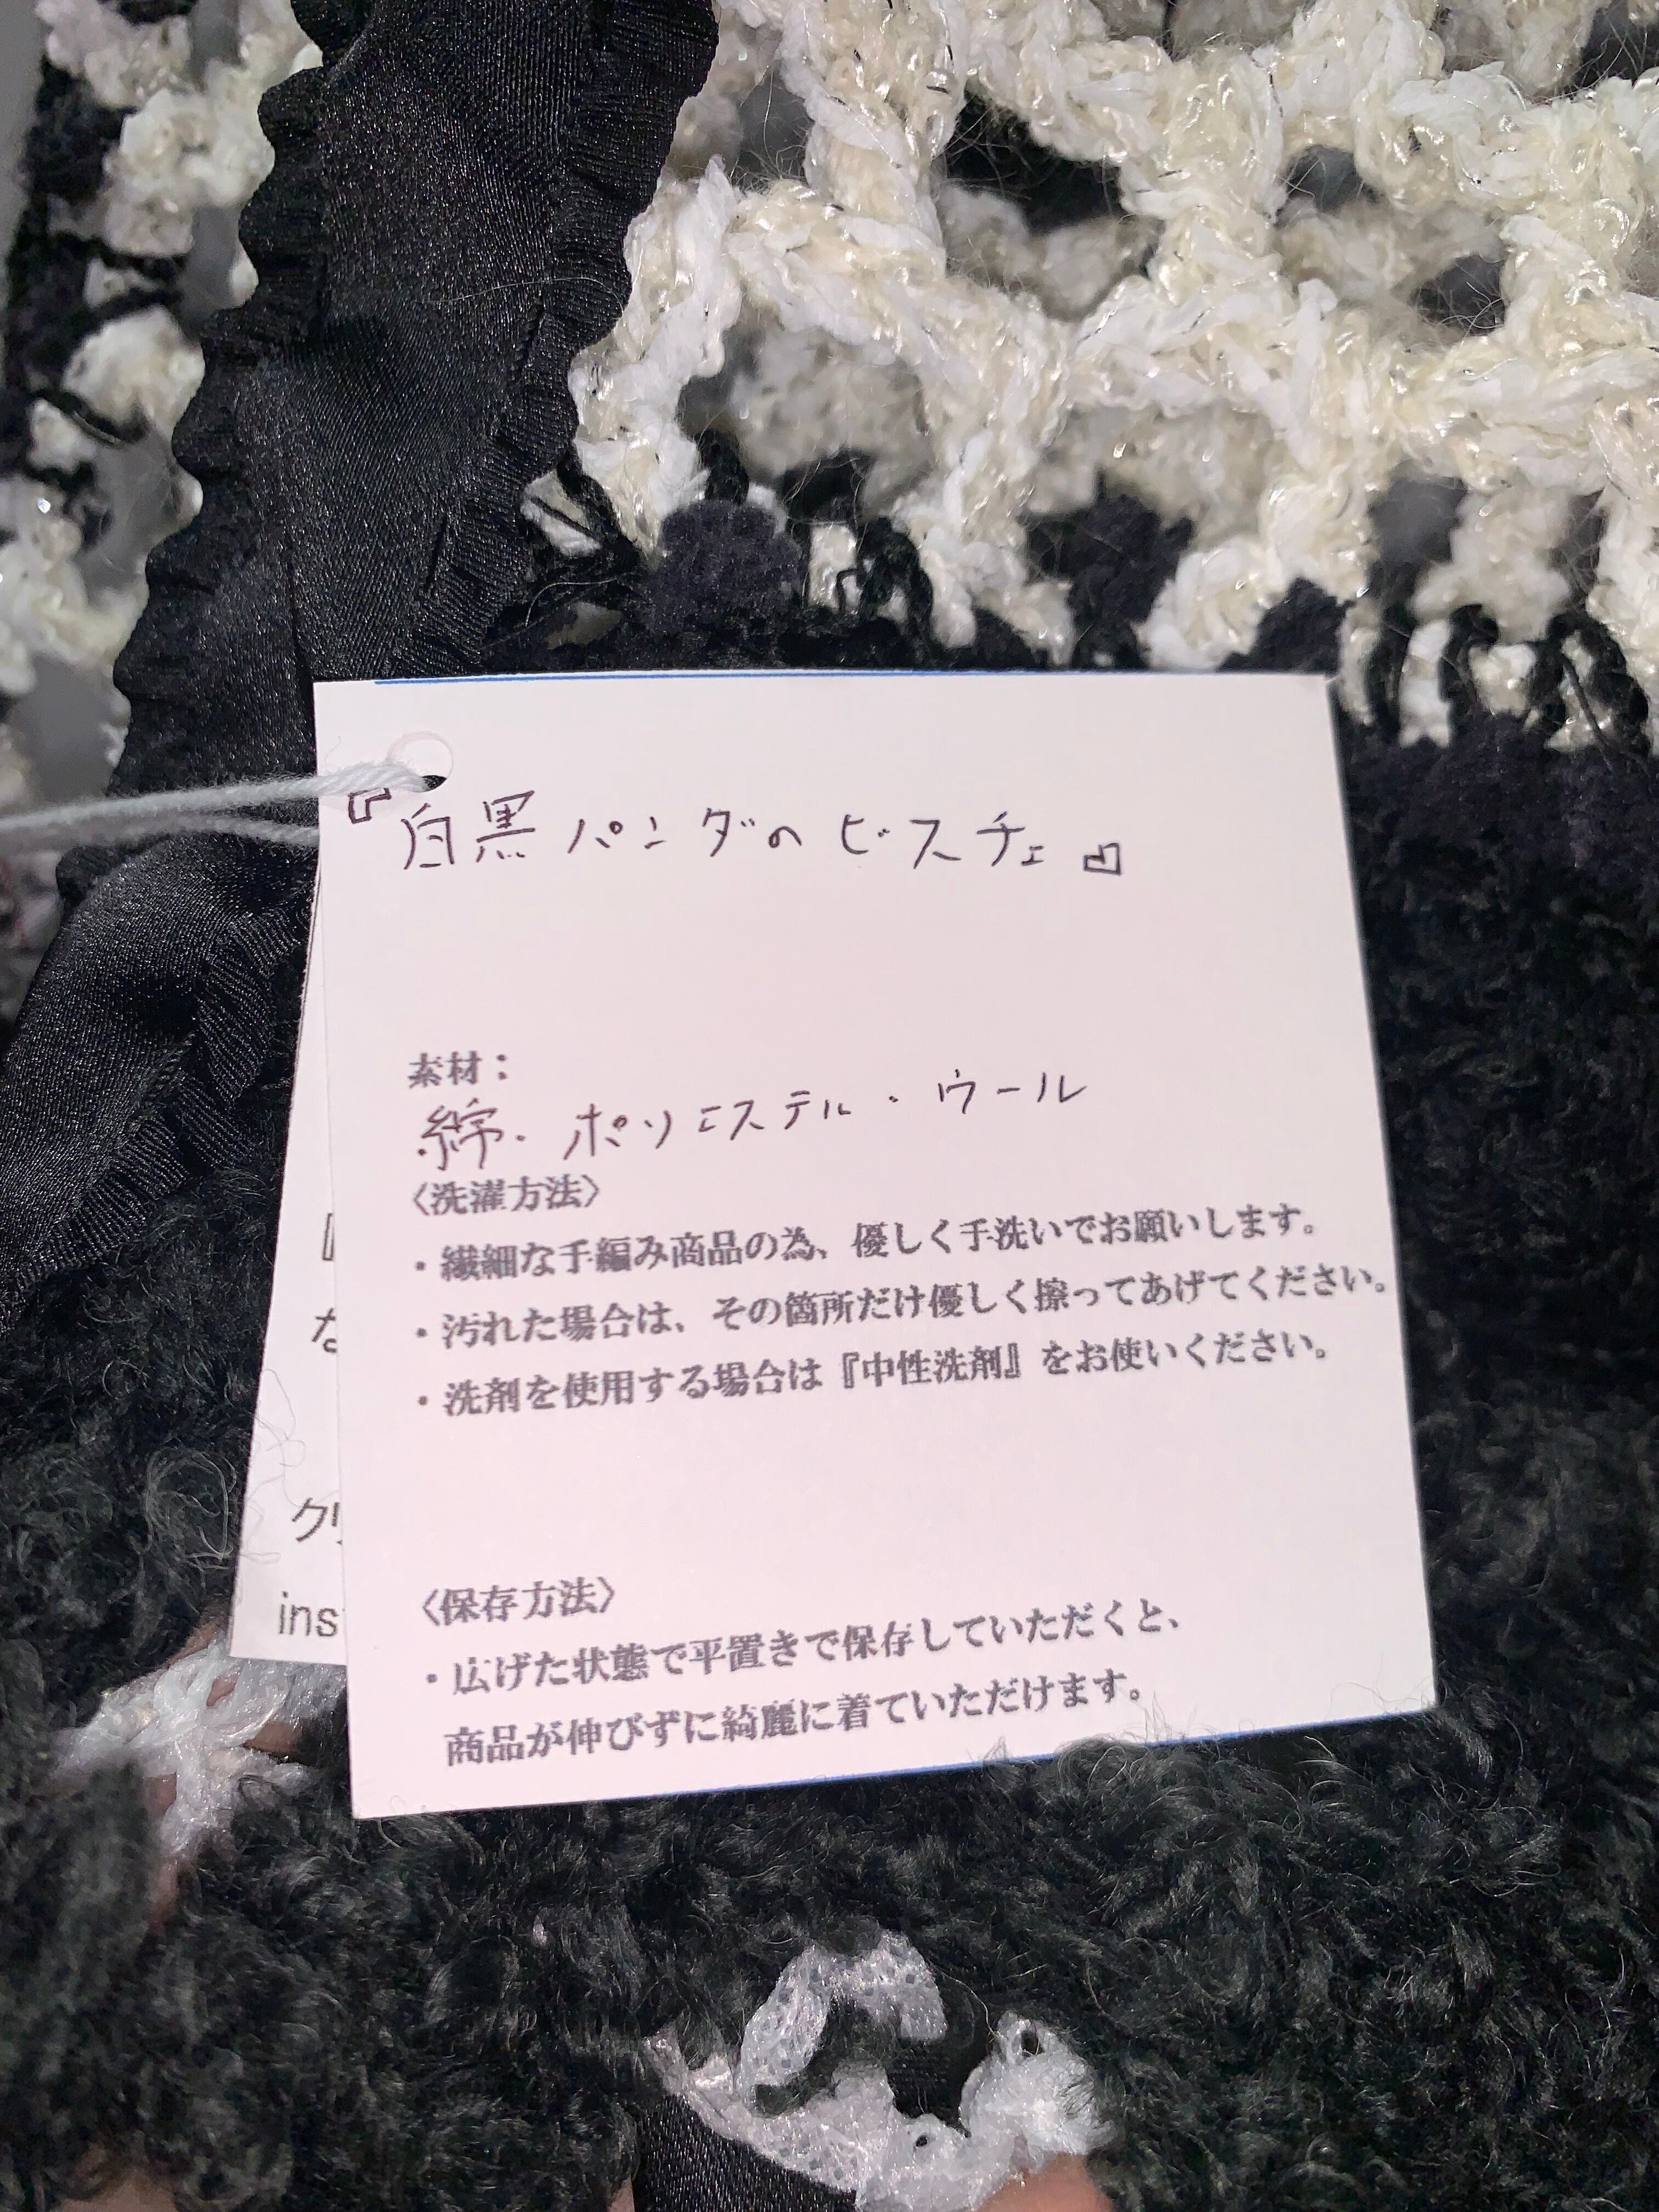 『白黒パンダのビスチェ』
素材：
綿・ポリエステル・ウール
〈洗濯方法〉
・繊細な手編み商品の為、優しく手洗いでお願いします。
・汚れた場合は、その箇所だけ優しく擦ってあげてください。
・洗剤を使用する場合は『中性洗剤』をお使いください。
〈保存方法〉
・広げた状態で平置きで保存していただくと、
商品が伸びずに綺麗に着ていただけます。
な
クリ
ins